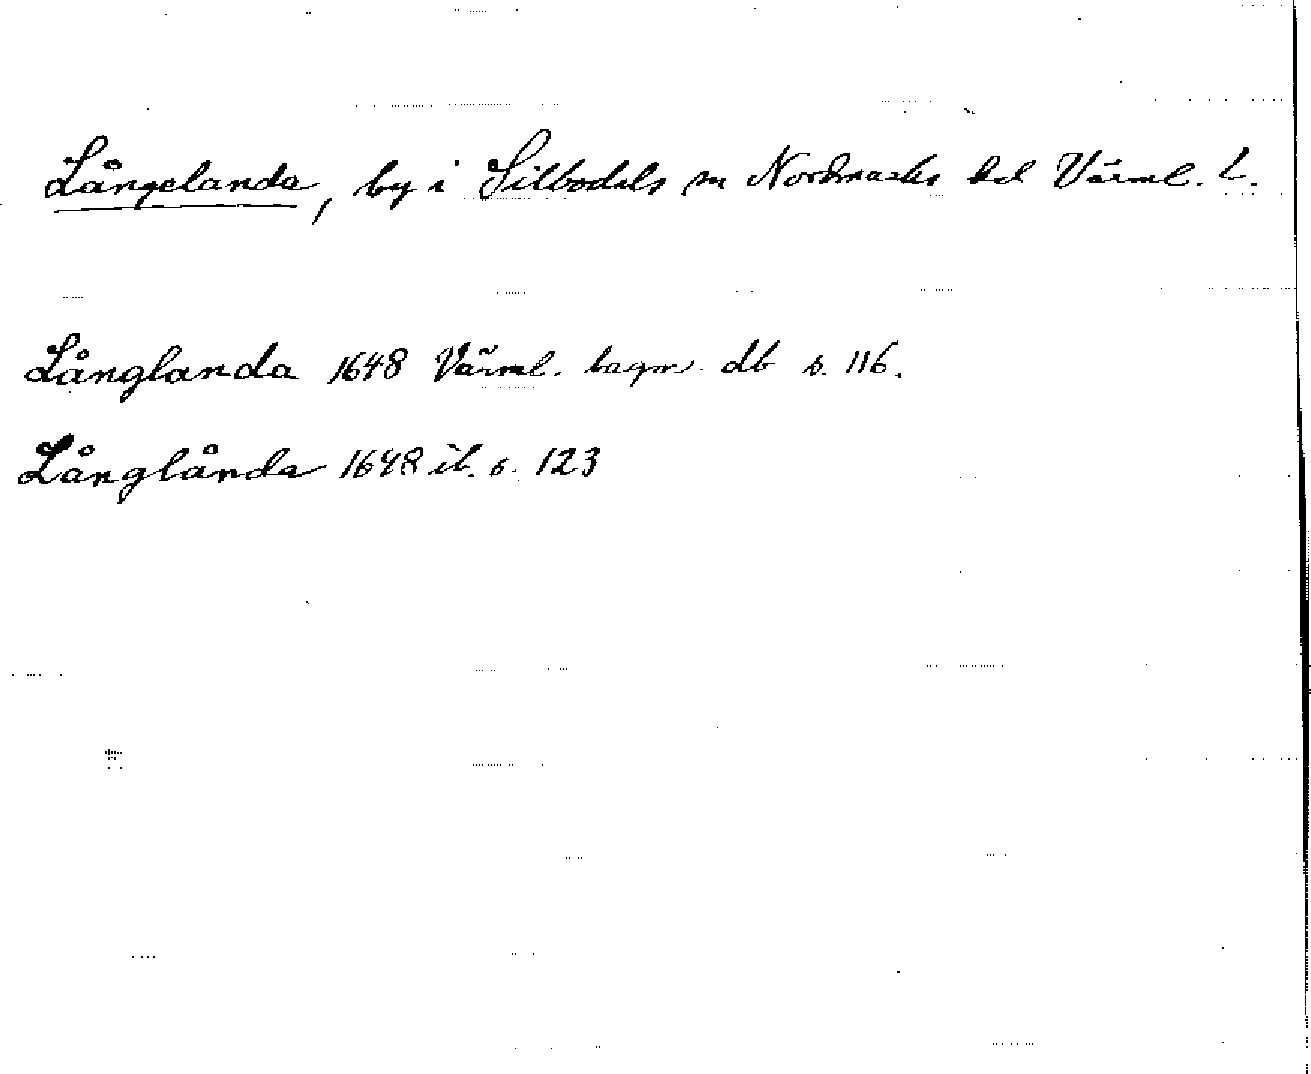 Långelanda, by i Silbodals sn Nordmarks hd Värml. l.
Långlanda 1648 Värml. lagm. db s. 116.
Långlånda 1648 ib. s. 123